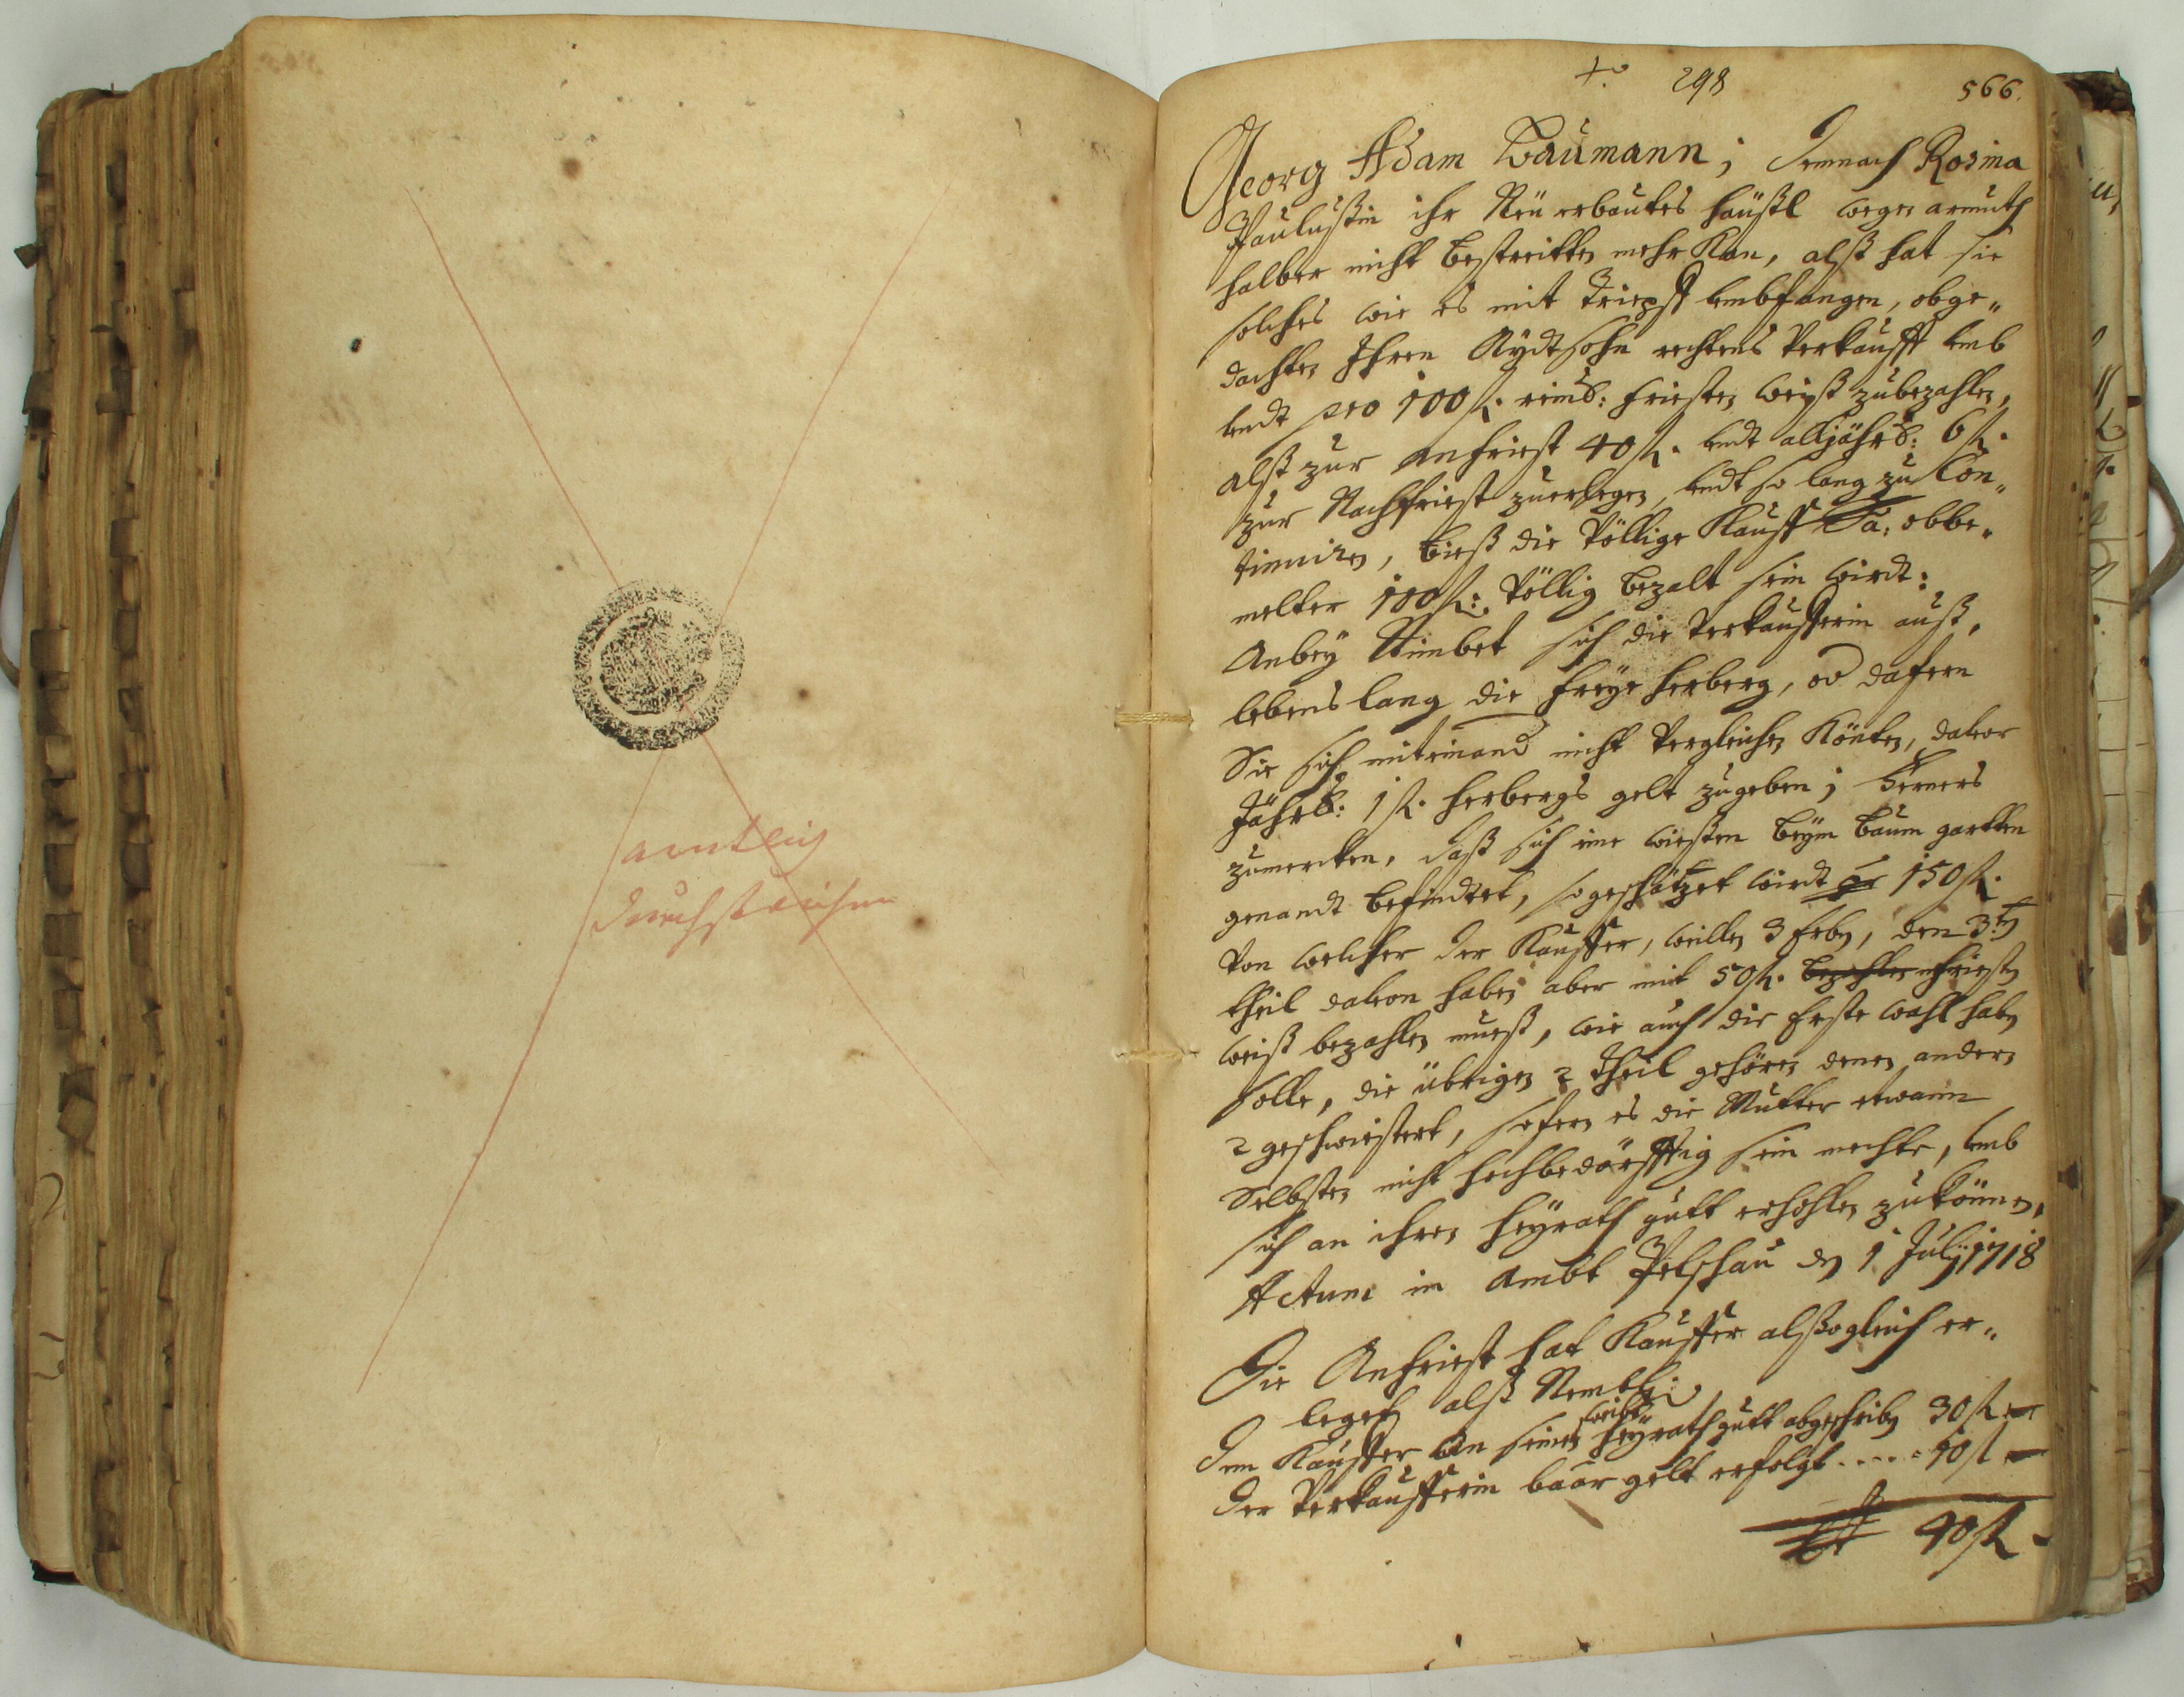 amtlich
durchstrichen
298
566.
Georg Adam Baumann; Demnach Rosina
Paulußin ihr Neü erbautes häüßl wegen armuth
halber nicht bestreitten mehr Kan, alß hat sie
solches wie es mit embfangen, obge„
dachten Ihren Aydtsohn rechtens verkaufft umb
undt pro 100 fl. reinl: friesten weyß zubezahlen,
alß zur anfriest 40 fl. undt alljährl: 6 fl.
zur Nachfriest zuerlegen, undt so lang zu Con„
tinuiren, bieß die völlige Kauff Sa: obbe„
melter 100 fl: völlig bezalt sein wirdt:
Anbey Nimbet sich die Verkaufferin auß,
lebens lang die freye herberg, od dafern
Sie sich miteinand nicht vergleichen könten, davor
Jährl: 1 fl. herbergs gelt zugeben; Ferners
zumercken, daß sich eine wießen beym baum gartten
genandt befindtet, so geschätzet wirdt pr 150 fl.
von welcher der Kauffer, weillen 3 Erben, den 3.ten
theil davon haben aber mit 50 fl. bezahlen friesten
weiß bezahlen mueß, wie auch die Erste wahl haben
solle, die übrigen 2 theil gehören denen andern
2 geschwiestert, sofern es die Mutter etwann
Selbsten nicht hochbedörfftig sein mechte, umb
sich an ihren heyrath gutt erhohlen zukönnen,
Actum in Ambt Pelschau den 1 July 1718
Die Anfriest hat Kauffer alßogleich er„
legt alß Nembl:
weibs
Dem Kauffer an seines heyrath gutt abgeschrieben 30 fl —
Der Verkaufferin baar gelt erfolgt . . . . . 10 fl —
40 fl -